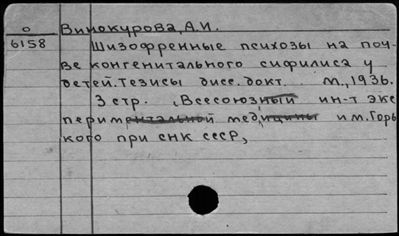 О
6158
Винокурова, А.И.
Шизофренные психозы на поч-
ве конгенитального сифилиса у
детей. Тезисы дисс. докт. М., 1936.
3 стр. (Всесоюзный ин-т экс
периментальной медицины им. Горь
кого при СНК СССР,